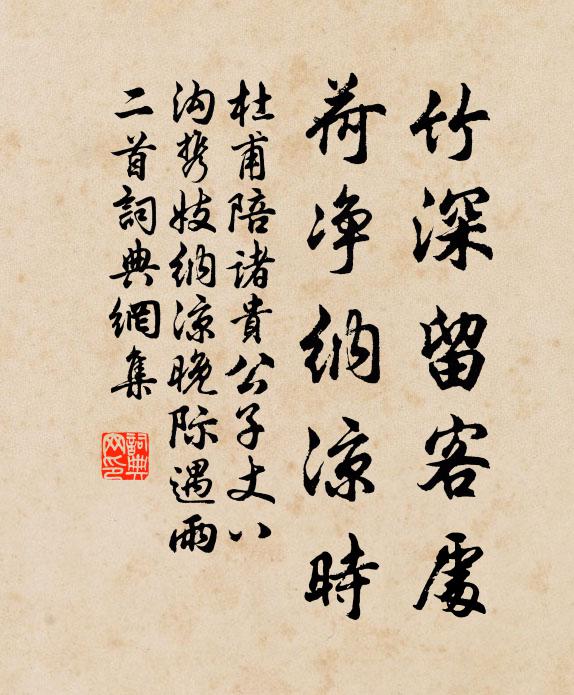 竹深留客處
荷净納凉時
杜甫陪諸貴公子丈八
沟携妓納凉晚际遇雨
二首詞典網集
詞典网印